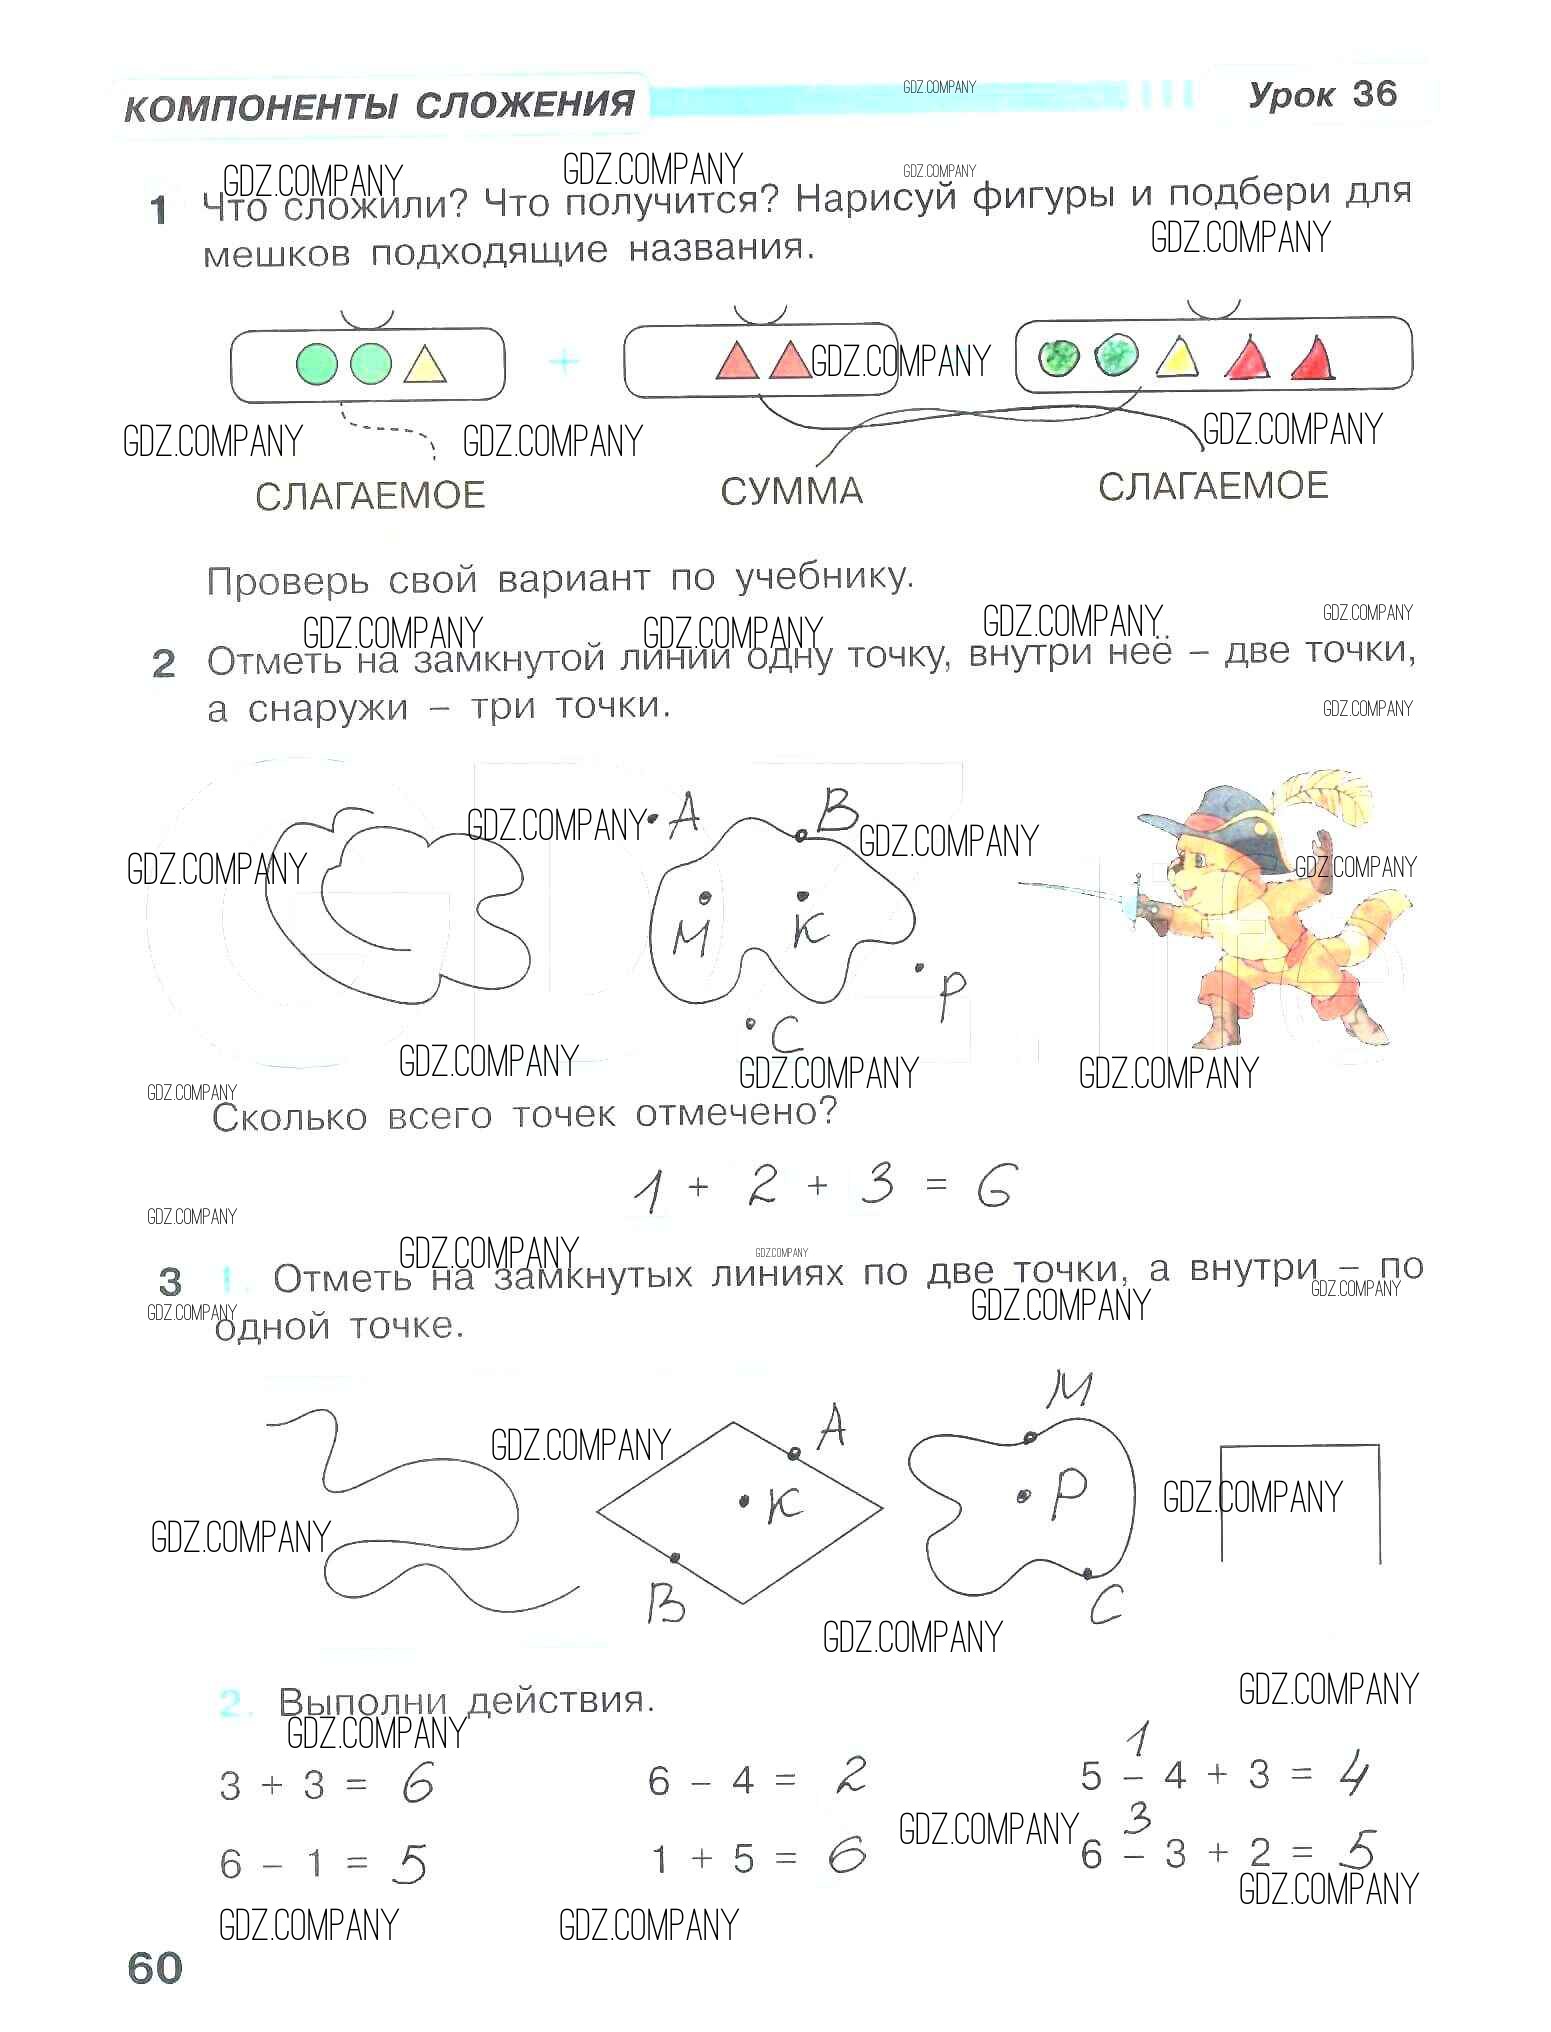 КОМПОНЕНТЫ СЛОЖЕНИЯ
GDZ.COMPANY
Урок 36
GDZ.COMPANY
GDZ.COMPANY
GDZ.COMPANY
1 Что сложили? Что получится? Нарисуй фигуры и подбери для
GDZ.COMPANY
мешков подходящие названия.
+
GDZ.COMPANY
GDZ.COMPANY
GDZ.COMPANY
GDZ.COMPANY
СЛАГАЕМОЕ СУММА СЛАГАЕМОЕ
Проверь свой вариант по учебнику.
GDZ.COMPANY
GDZ.COMPANY
GDZ.COMPANY
GDZ.COMPANY
2 Отметь на замкнутой линии одну точку, внутри неё – две точки,
а снаружи – три точки.
GDZ.COMPANY
GDZ.COMPANY
A
B
GDZ.COMPANY
GDZ.COMPANY
GDZ.COMPANY
M
K
P
C
GDZ.COMPANY
GDZ.COMPANY
GDZ.COMPANY
GDZ.COMPANY
Сколько всего точек отмечено?
1 + 2 + 3 = 6
GDZ.COMPANY
GDZ.COMPANY
GDZ.COMPANY
3 1. Отметь на замкнутых линиях по две точки, а внутри – по
GDZ.COMPANY
GDZ.COMPANY
GDZ.COMPANY
одной точке.
M
A
GDZ.COMPANY
K
P
GDZ.COMPANY
GDZ.COMPANY
B
C
GDZ.COMPANY
GDZ.COMPANY
2. Выполни действия.
GDZ.COMPANY
1
3 + 3 = 6 6 – 4 = 2 5 – 4 + 3 = 4
GDZ.COMPANY
3
6 – 1 = 5 1 + 5 = 6 6 – 3 + 2 = 5
GDZ.COMPANY
GDZ.COMPANY
GDZ.COMPANY
60